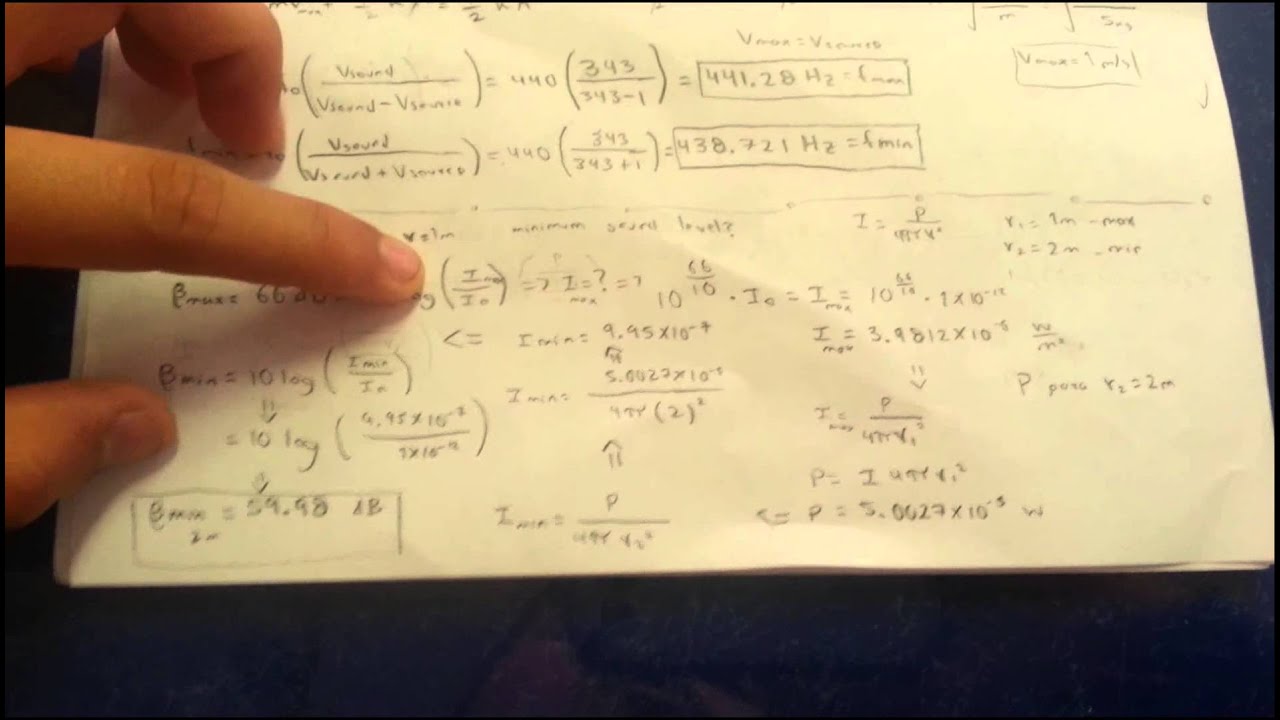 1/2 = 1/2
Vmax = Vsource
Vmax = 1 m/s
(Vsound / Vsound - Vsource) = 440 (343 / 343-1) = 441.28 Hz = fmax
(Vsound / Vsound + Vsource) = 440 (343 / 343+1) = 438.721 Hz = fmin
r=1m minimum sound level?
I = P / 4πr²
r₁ = 1m - max
r₂ = 2m - min
βmax = 66 (Imax / I₀) => Imax = ? => 10^(66/10) · I₀ = Imax = 10^(66/10) · 1x10⁻¹²
<= Imin = 9.95x10⁻⁷
Imax = 3.9812x10⁻⁶ w/m²
βmin = 10 log (Imin / I₀)
Imin = 5.0027x10⁻⁵ / 4π(2)²
P para r₂ = 2m
= 10 log (9.95x10⁻⁷ / 1x10⁻¹²)
Imax = P / 4πr₁²
P = I 4πr₁²
βmin 2m = 59.98 dB
Imin = P / 4πr₂²
<= P = 5.0027x10⁻⁵ w